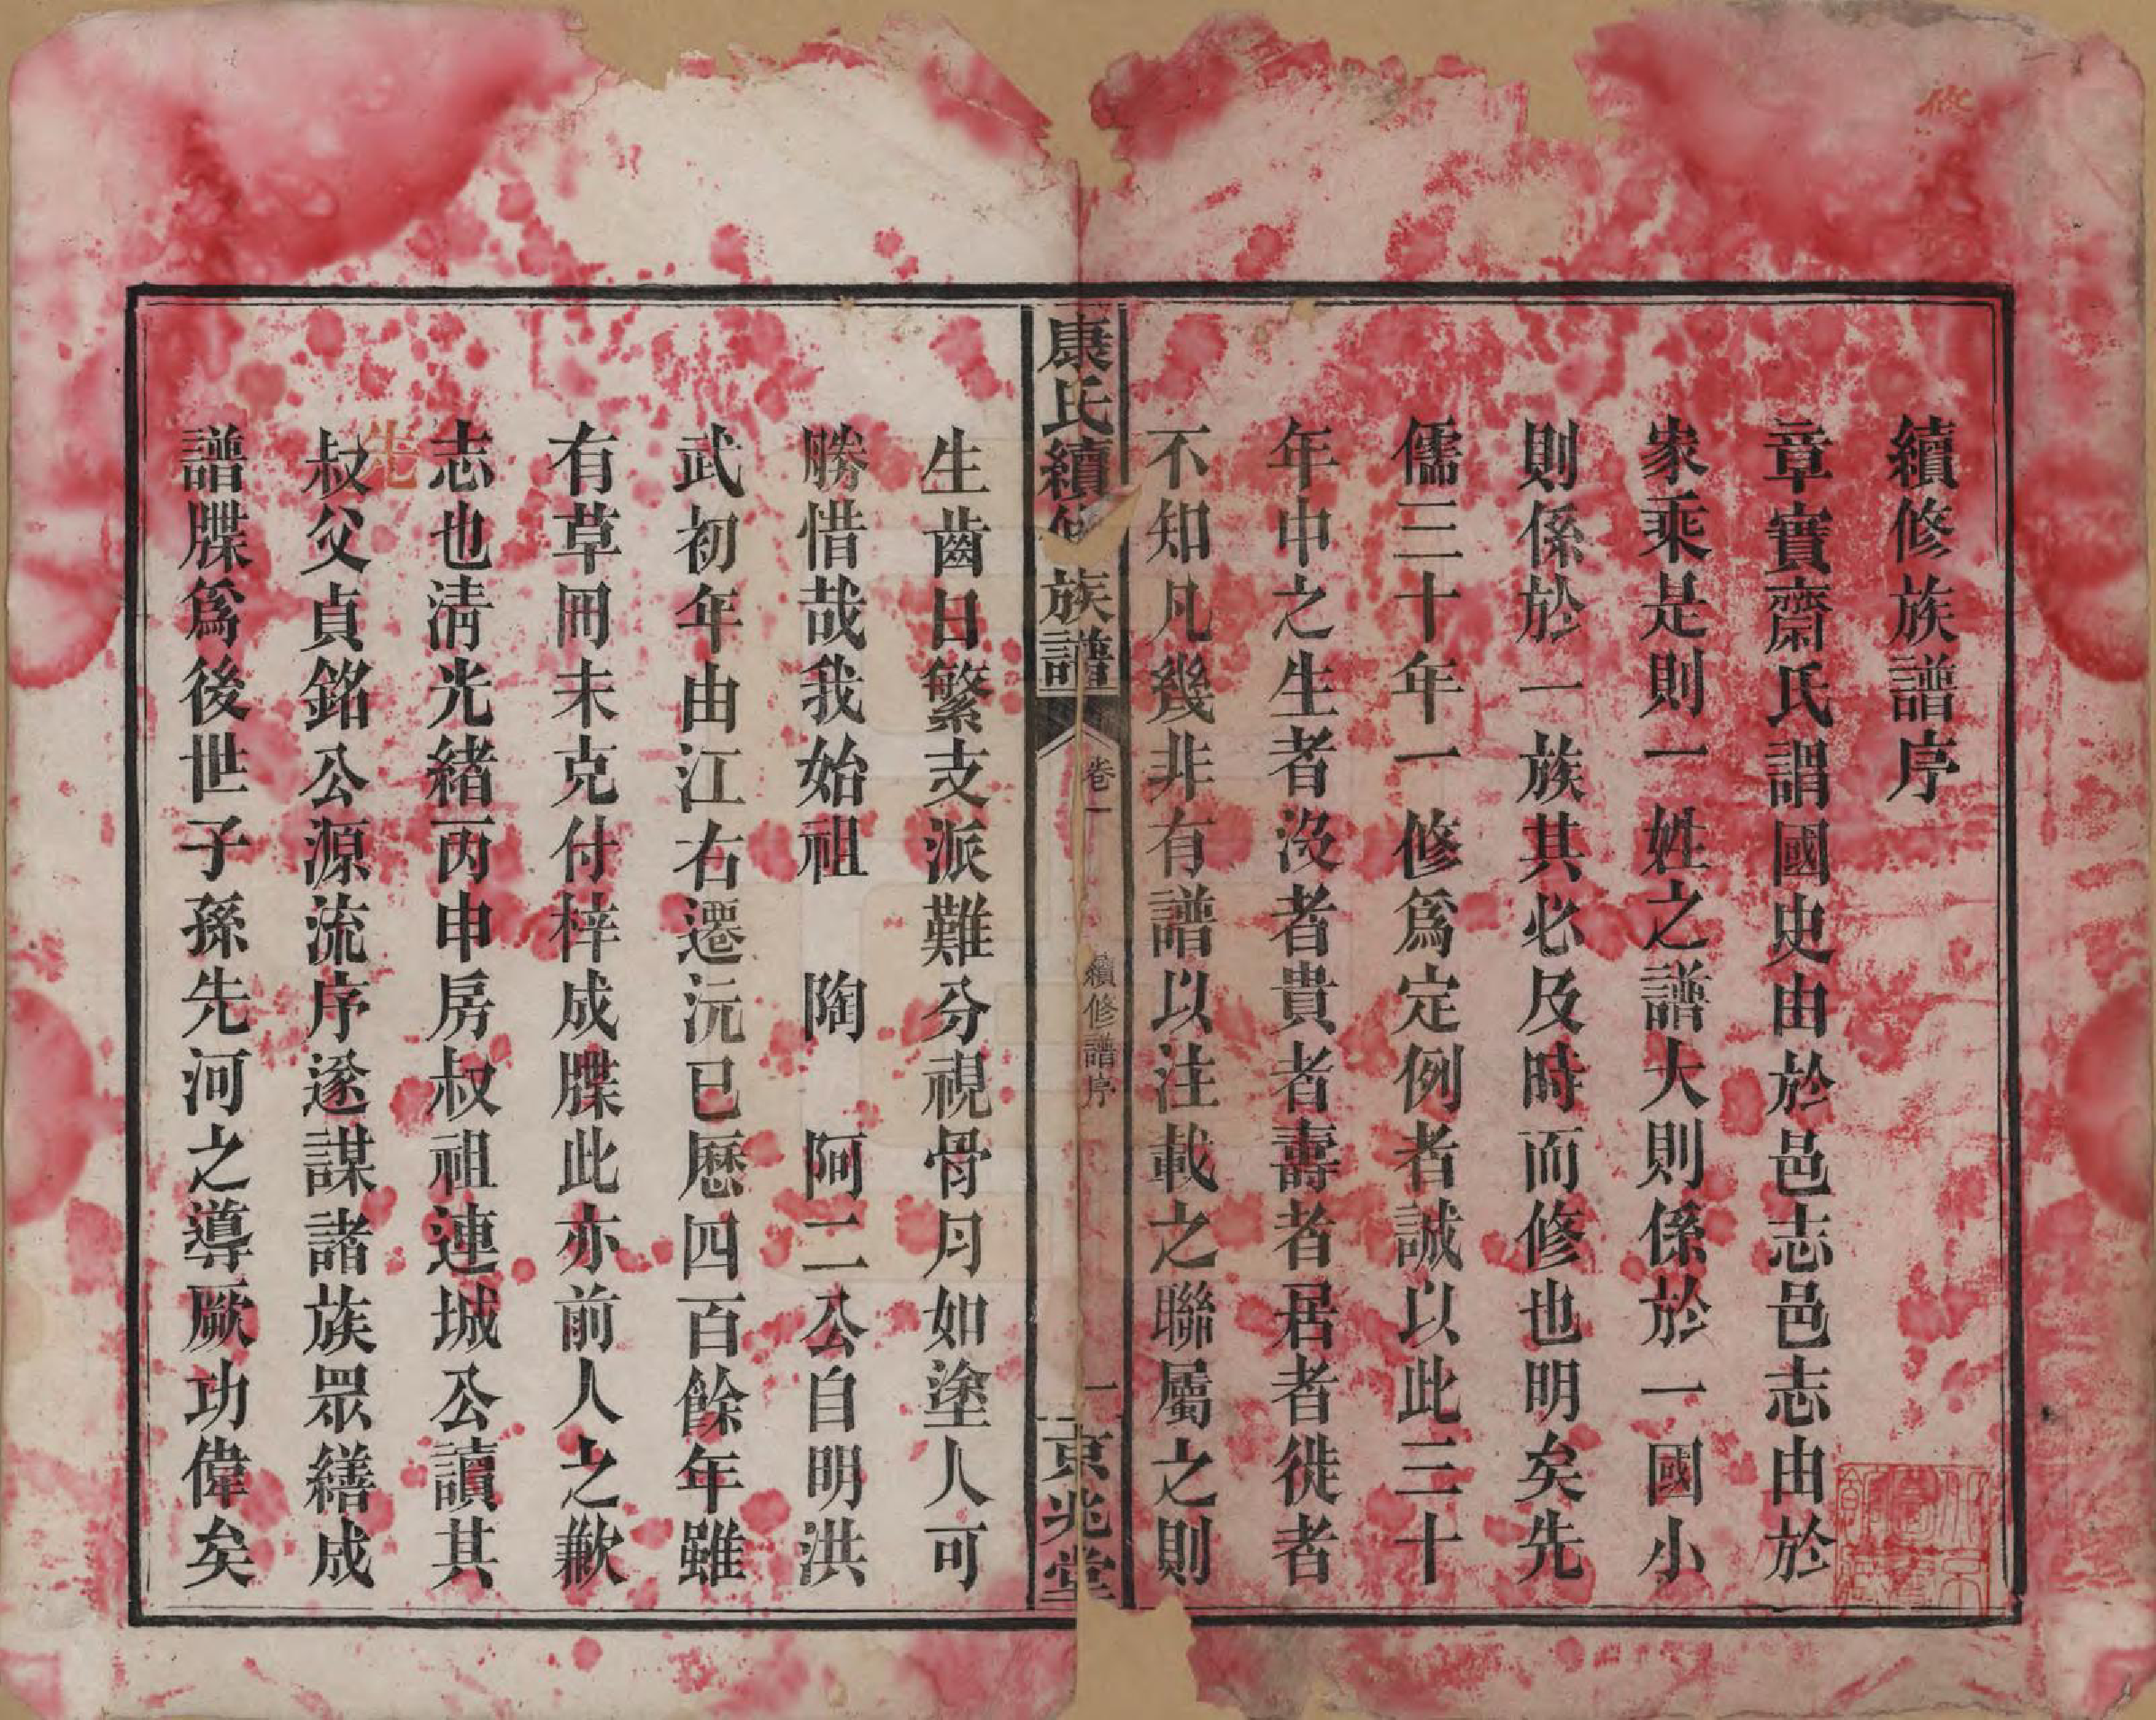 續修族譜序
章實齋氏謂國史由於邑志邑志由於
家乘是則一姓之譜大則係於一國小
則係於一族其必及時而修也明矣先
儒三十年一修爲定例者誠以此三十
年中之生者沒者貴者壽者居者徙者
不知凡幾非有譜以注載之聯屬之則
康氏續修族譜
卷一
續修譜序
一
京兆堂
生齒日繁支派難分視骨月如塗人可
勝惜哉我始祖 陶 阿二公自明洪
武初年由江右遷沅已歷四百餘年雖
有草冊未克付梓成牒此亦前人之歉
志也淸光緒丙申房叔祖連城公讀其
先
叔父貞銘公源流序遂謀諸族眾繕成
譜牒爲後世子孫先河之導厥功偉矣